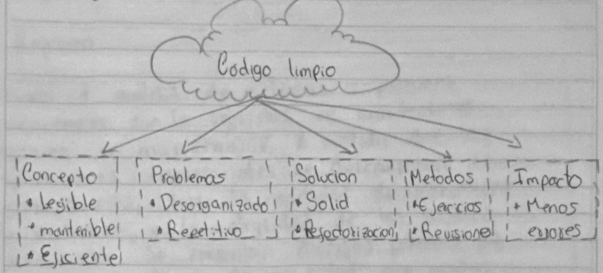 Codigo limpio
Concepto
• Legible
• mantenible
• Eficiente
Problemas
• Desorganizado
• Repetitivo
Solucion
• Solid
• Refactorizacion
Metodos
• Ejercicios
• Revisiones
Impacto
• Menos
errores